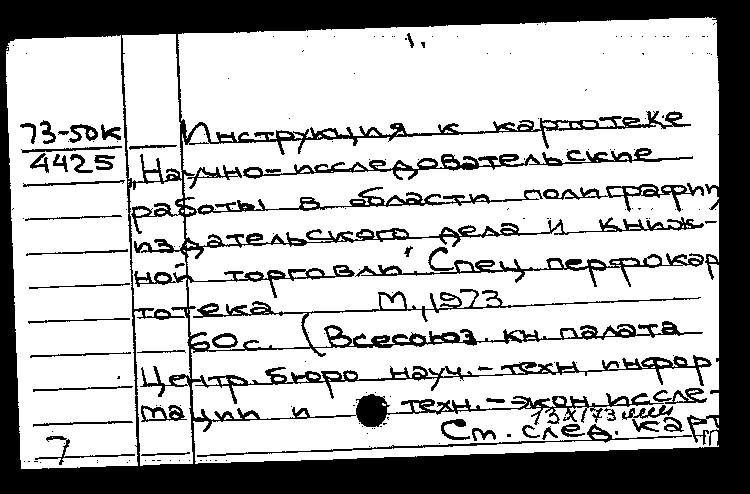 1.
73-50к
4425
Инструкция к картотеке
„Научно-исследовательские
работы в области полиграфии
издательского дела и книж-
ной торговли". Спец. перфокар
тотека. М., 1973.
60с. (Всесоюз. кн. палата
Центр. бюро науч.-техн. инфор-
мации и техн.-экон. иссле-
13 XI 73
См. след. карт
7